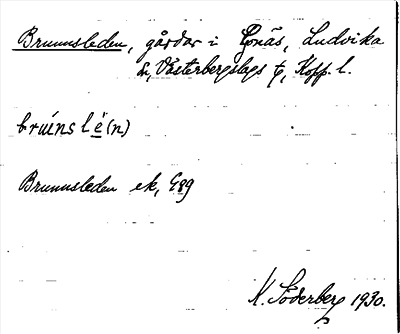 Brunnsleden, gårdar i Gonäs, Ludvika
sn, Västerbergslags tg, Kopp. l.
bruinslè(n)
Brunnsleden ek, G89
K. Söderberg 1930.